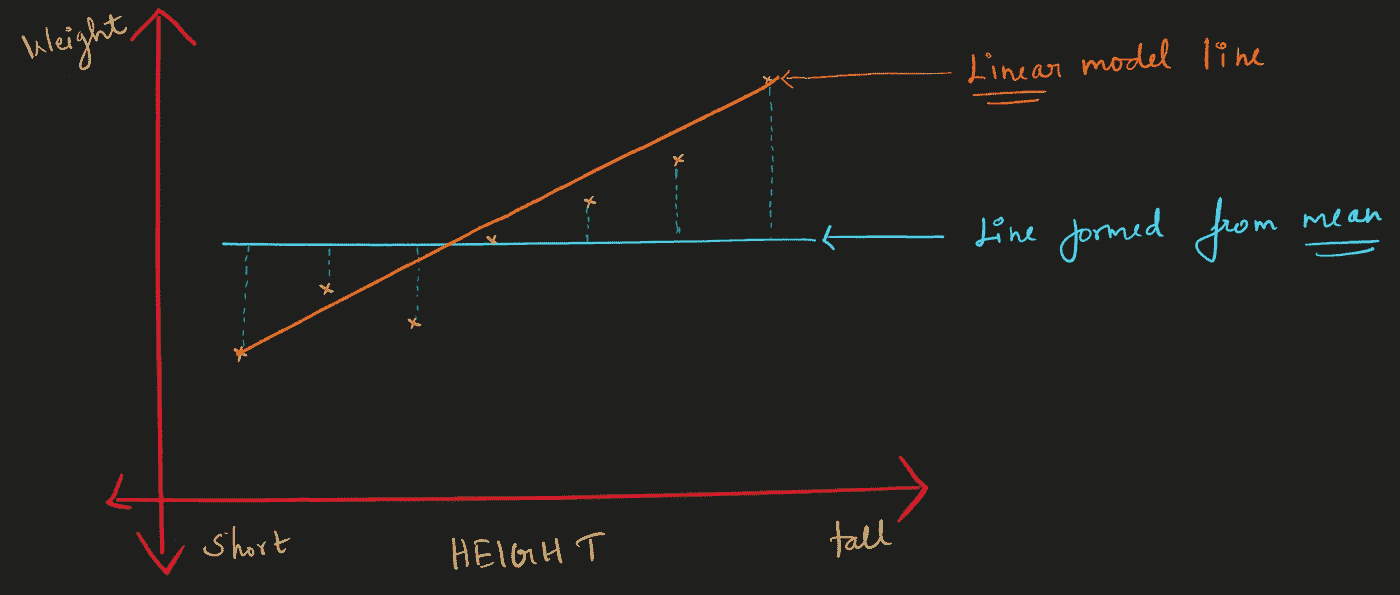 Weight
Linear model line
Line formed from mean
Short
HEIGHT
tall